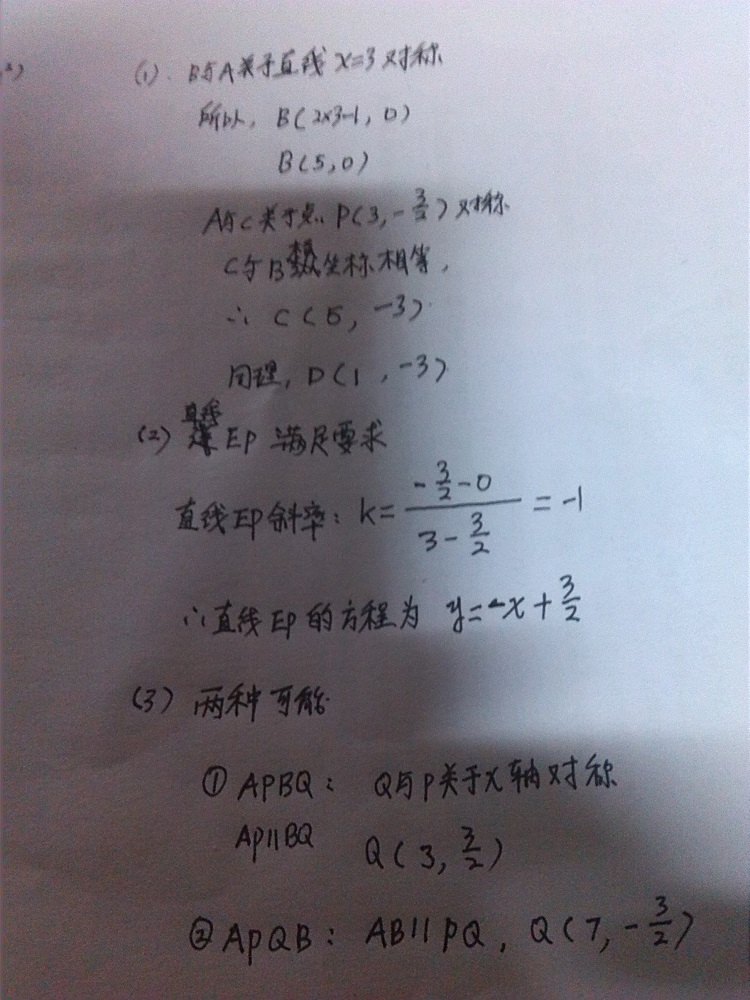 (1). B与A关于直线 x=3 对称
所以, B(2×3-1, 0)
B(5,0)
A与C关于点 P(3, -3/2) 对称
C与B横坐标相等,
∴ C(5, -3)
同理, D(1, -3)
(2) 直线 EP 满足要求
直线EP斜率: k = (-3/2 - 0)/(3 - 3/2) = -1
∴直线EP的方程为 y=-x+3/2
(3) 两种可能
① APBQ: Q与P关于X轴对称
AP∥BQ Q(3, 3/2)
② APQB: AB∥PQ, Q(7, -3/2)